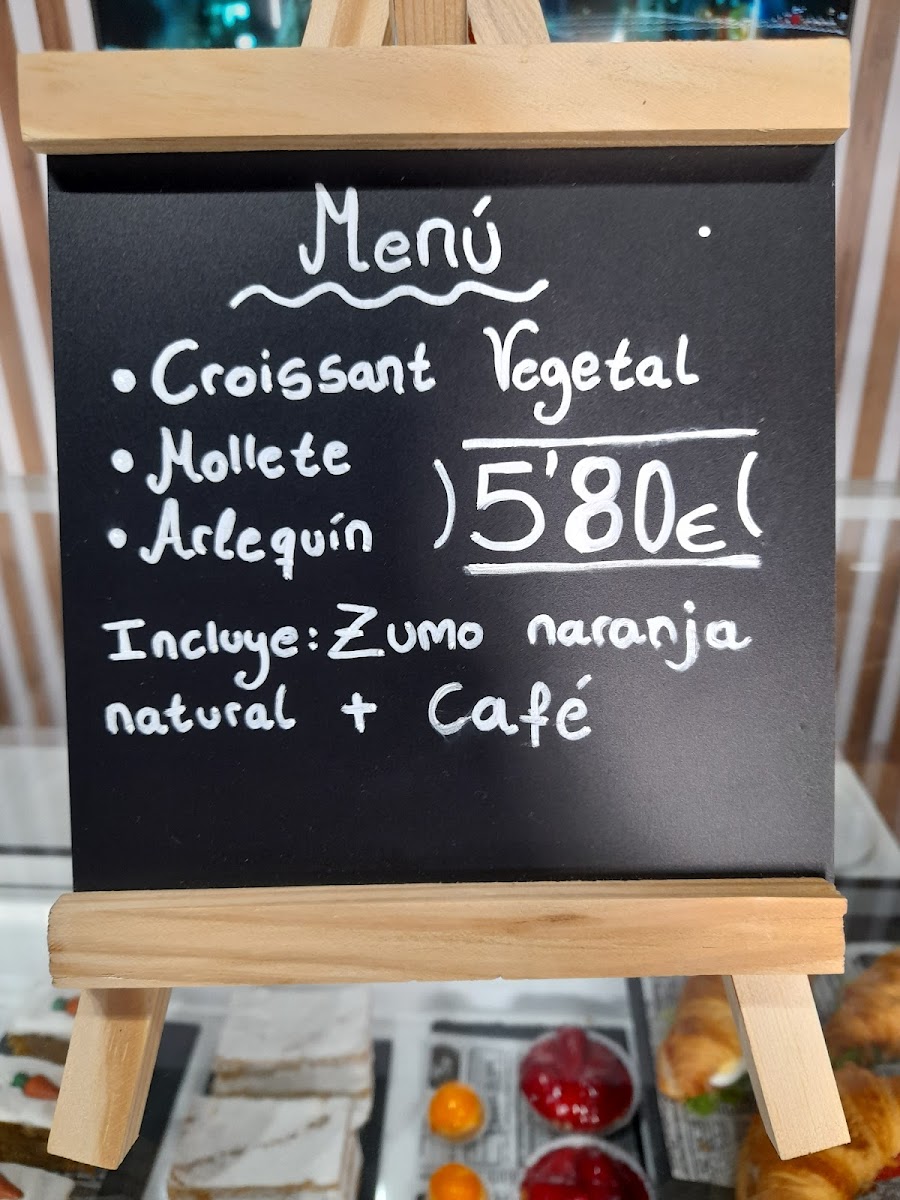 Menú
• Croissant Vegetal
• Mollete
5'80€
• Arlequín
Incluye: Zumo naranja
natural + Café